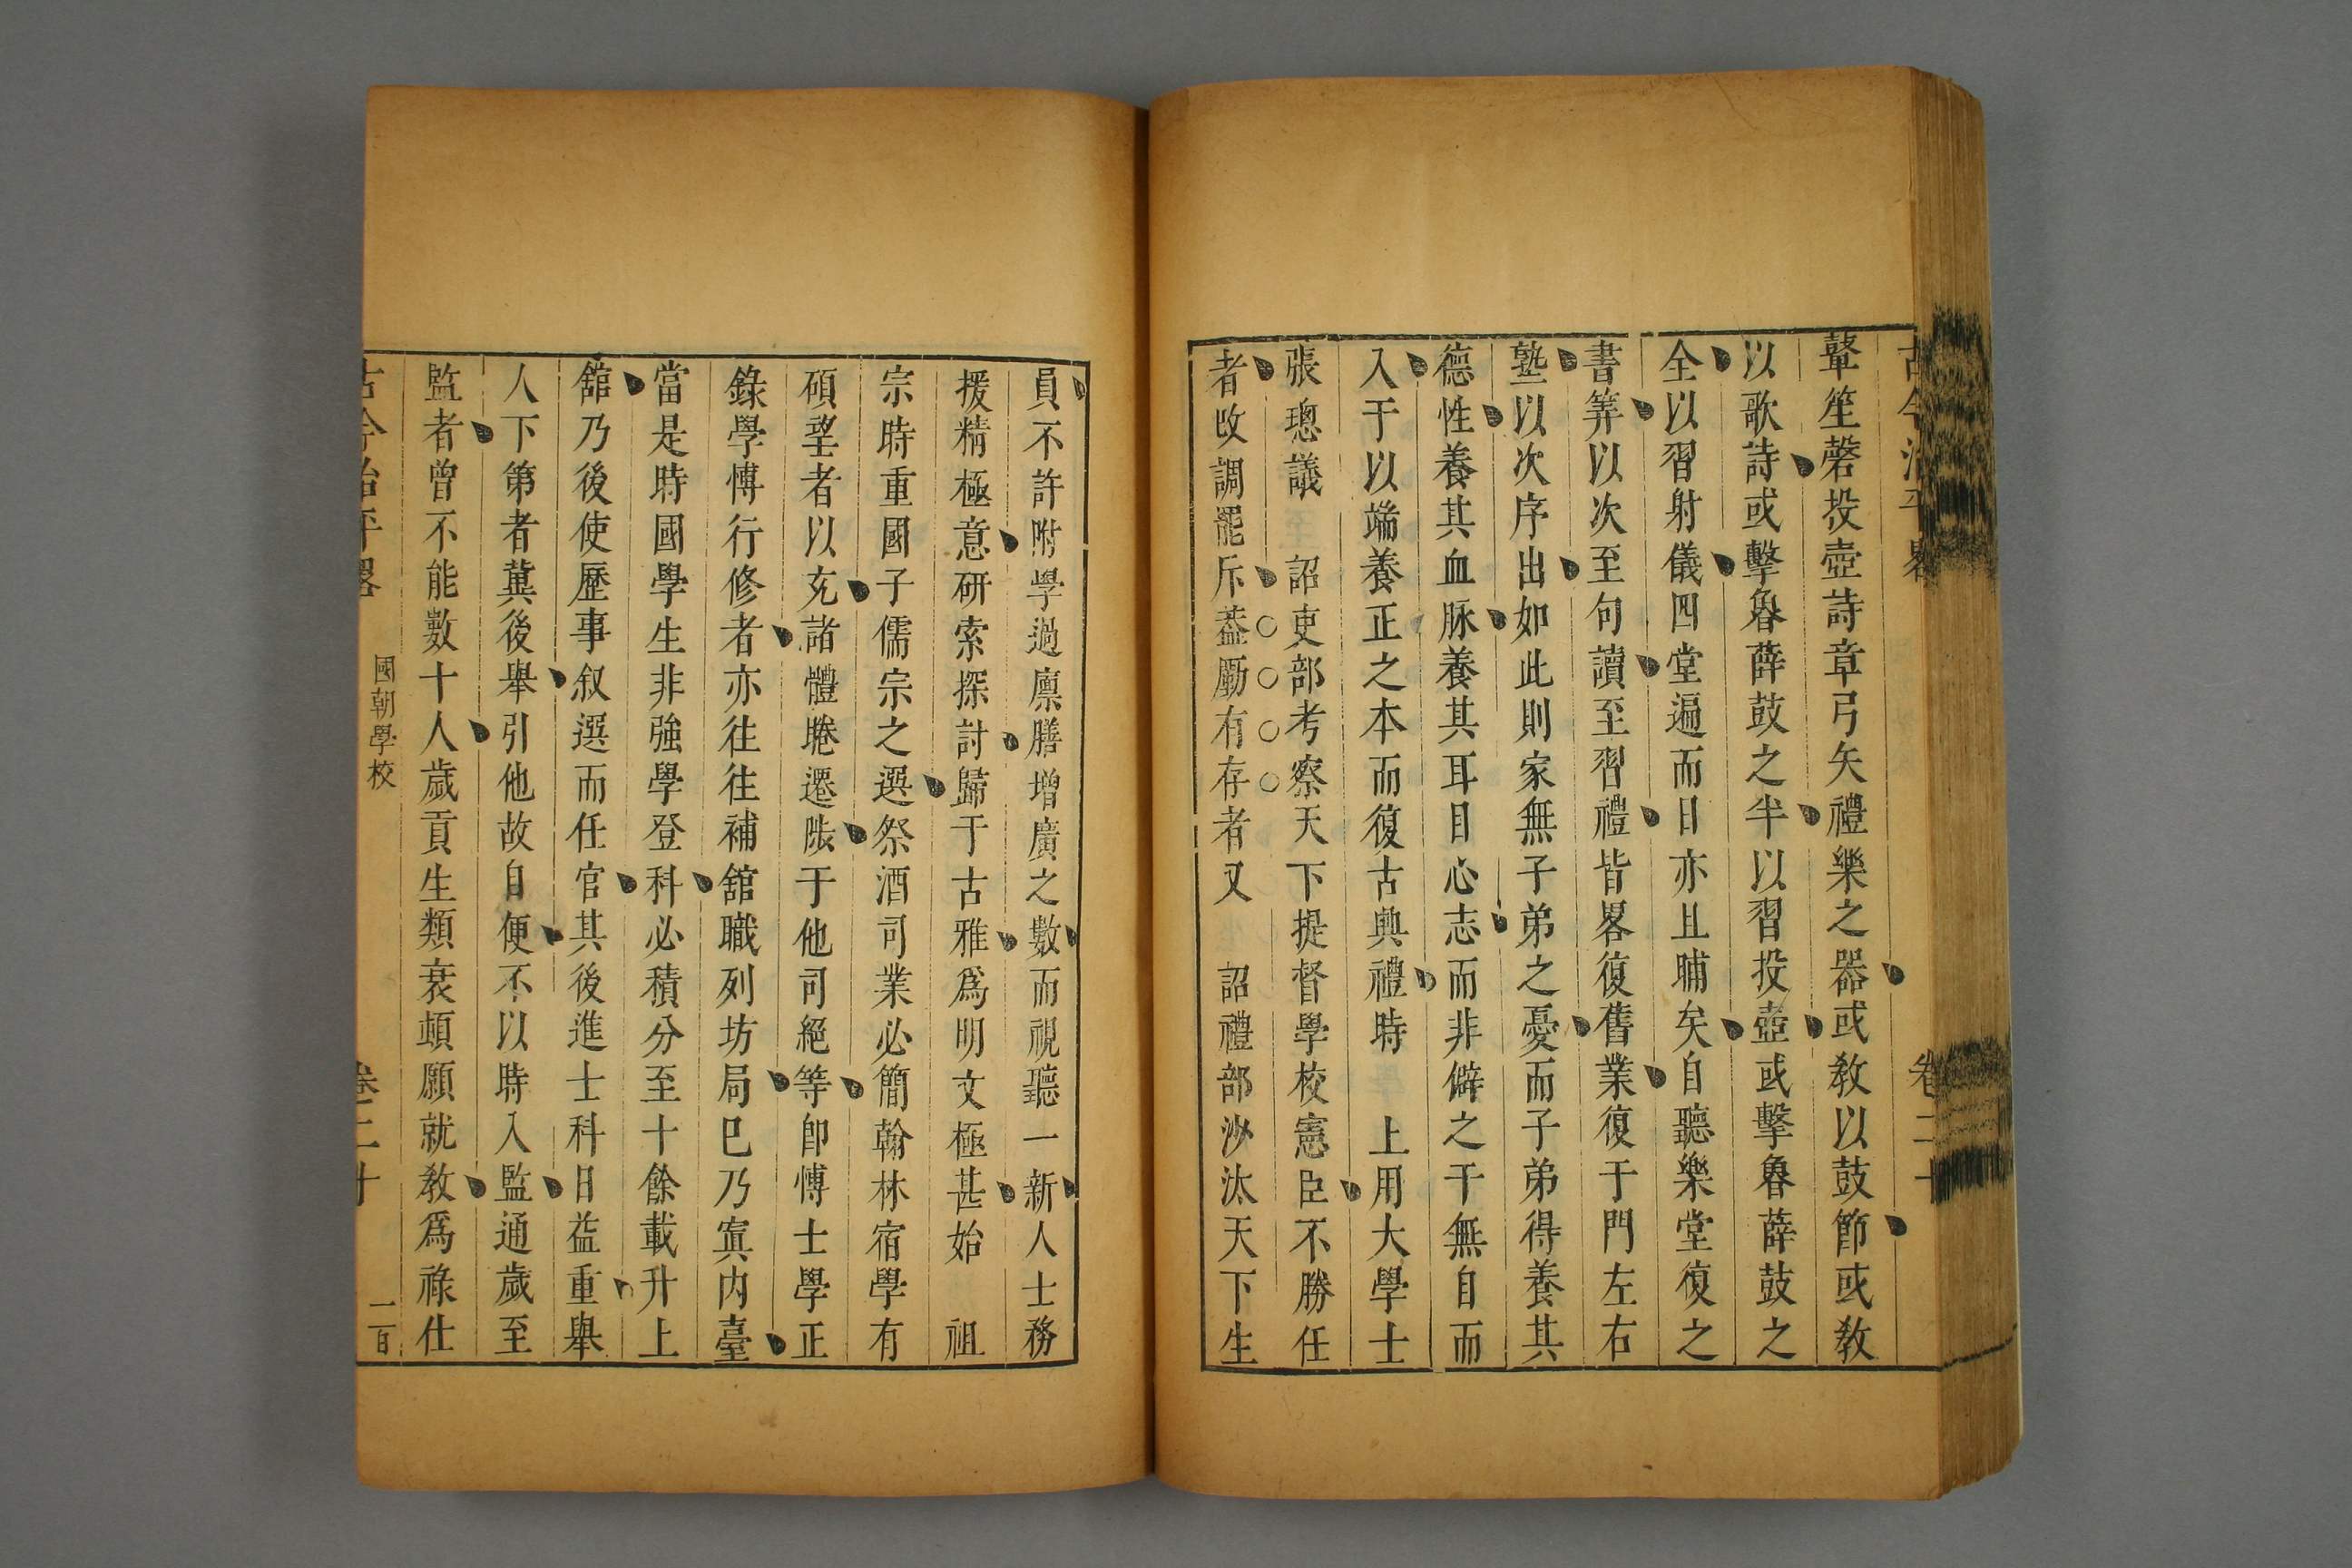 古今治平畧 卷二十
鼙笙磬投壺詩章弓矢禮樂之器或教以鼓節或教
以歌詩或擊魯薛鼓之半以習投壺或擊魯薛鼓之
全以習射儀四堂遍而日亦且晡矣自聽樂堂復之
書筭以次至句讀至習禮皆畧復舊業復于門左右
塾以次序出如此則家無子弟之憂而子弟得養其
德性養其血脉養其耳目心志而非僻之干無自而
入于以端養正之本而復古典禮時 上用大學士
張璁議 詔吏部考察天下提督學校憲臣不勝任
者改調罷斥葢勵有存者又 詔禮部沙汰天下生
員不許附學過廩膳增廣之數而視聽一新人士務
援精極意研索探討歸于古雅爲明文極甚始 祖
宗時重國子儒宗之選祭酒司業必簡翰林宿學有
碩望者以充諸體睠遷陟于他司絕等卽愽士學正
錄學愽行修者亦往往補舘職列坊局巳乃寘内臺
當是時國學生非強學登科必積分至十餘載升上
舘乃後使歷事叙選而任官其後進士科日益重舉
人下第者冀後舉引他故自便不以時入監通歲至
監者曾不能數十人歲貢生類衰頓願就教爲祿仕
古今治平畧 國朝學校 卷二十 一百